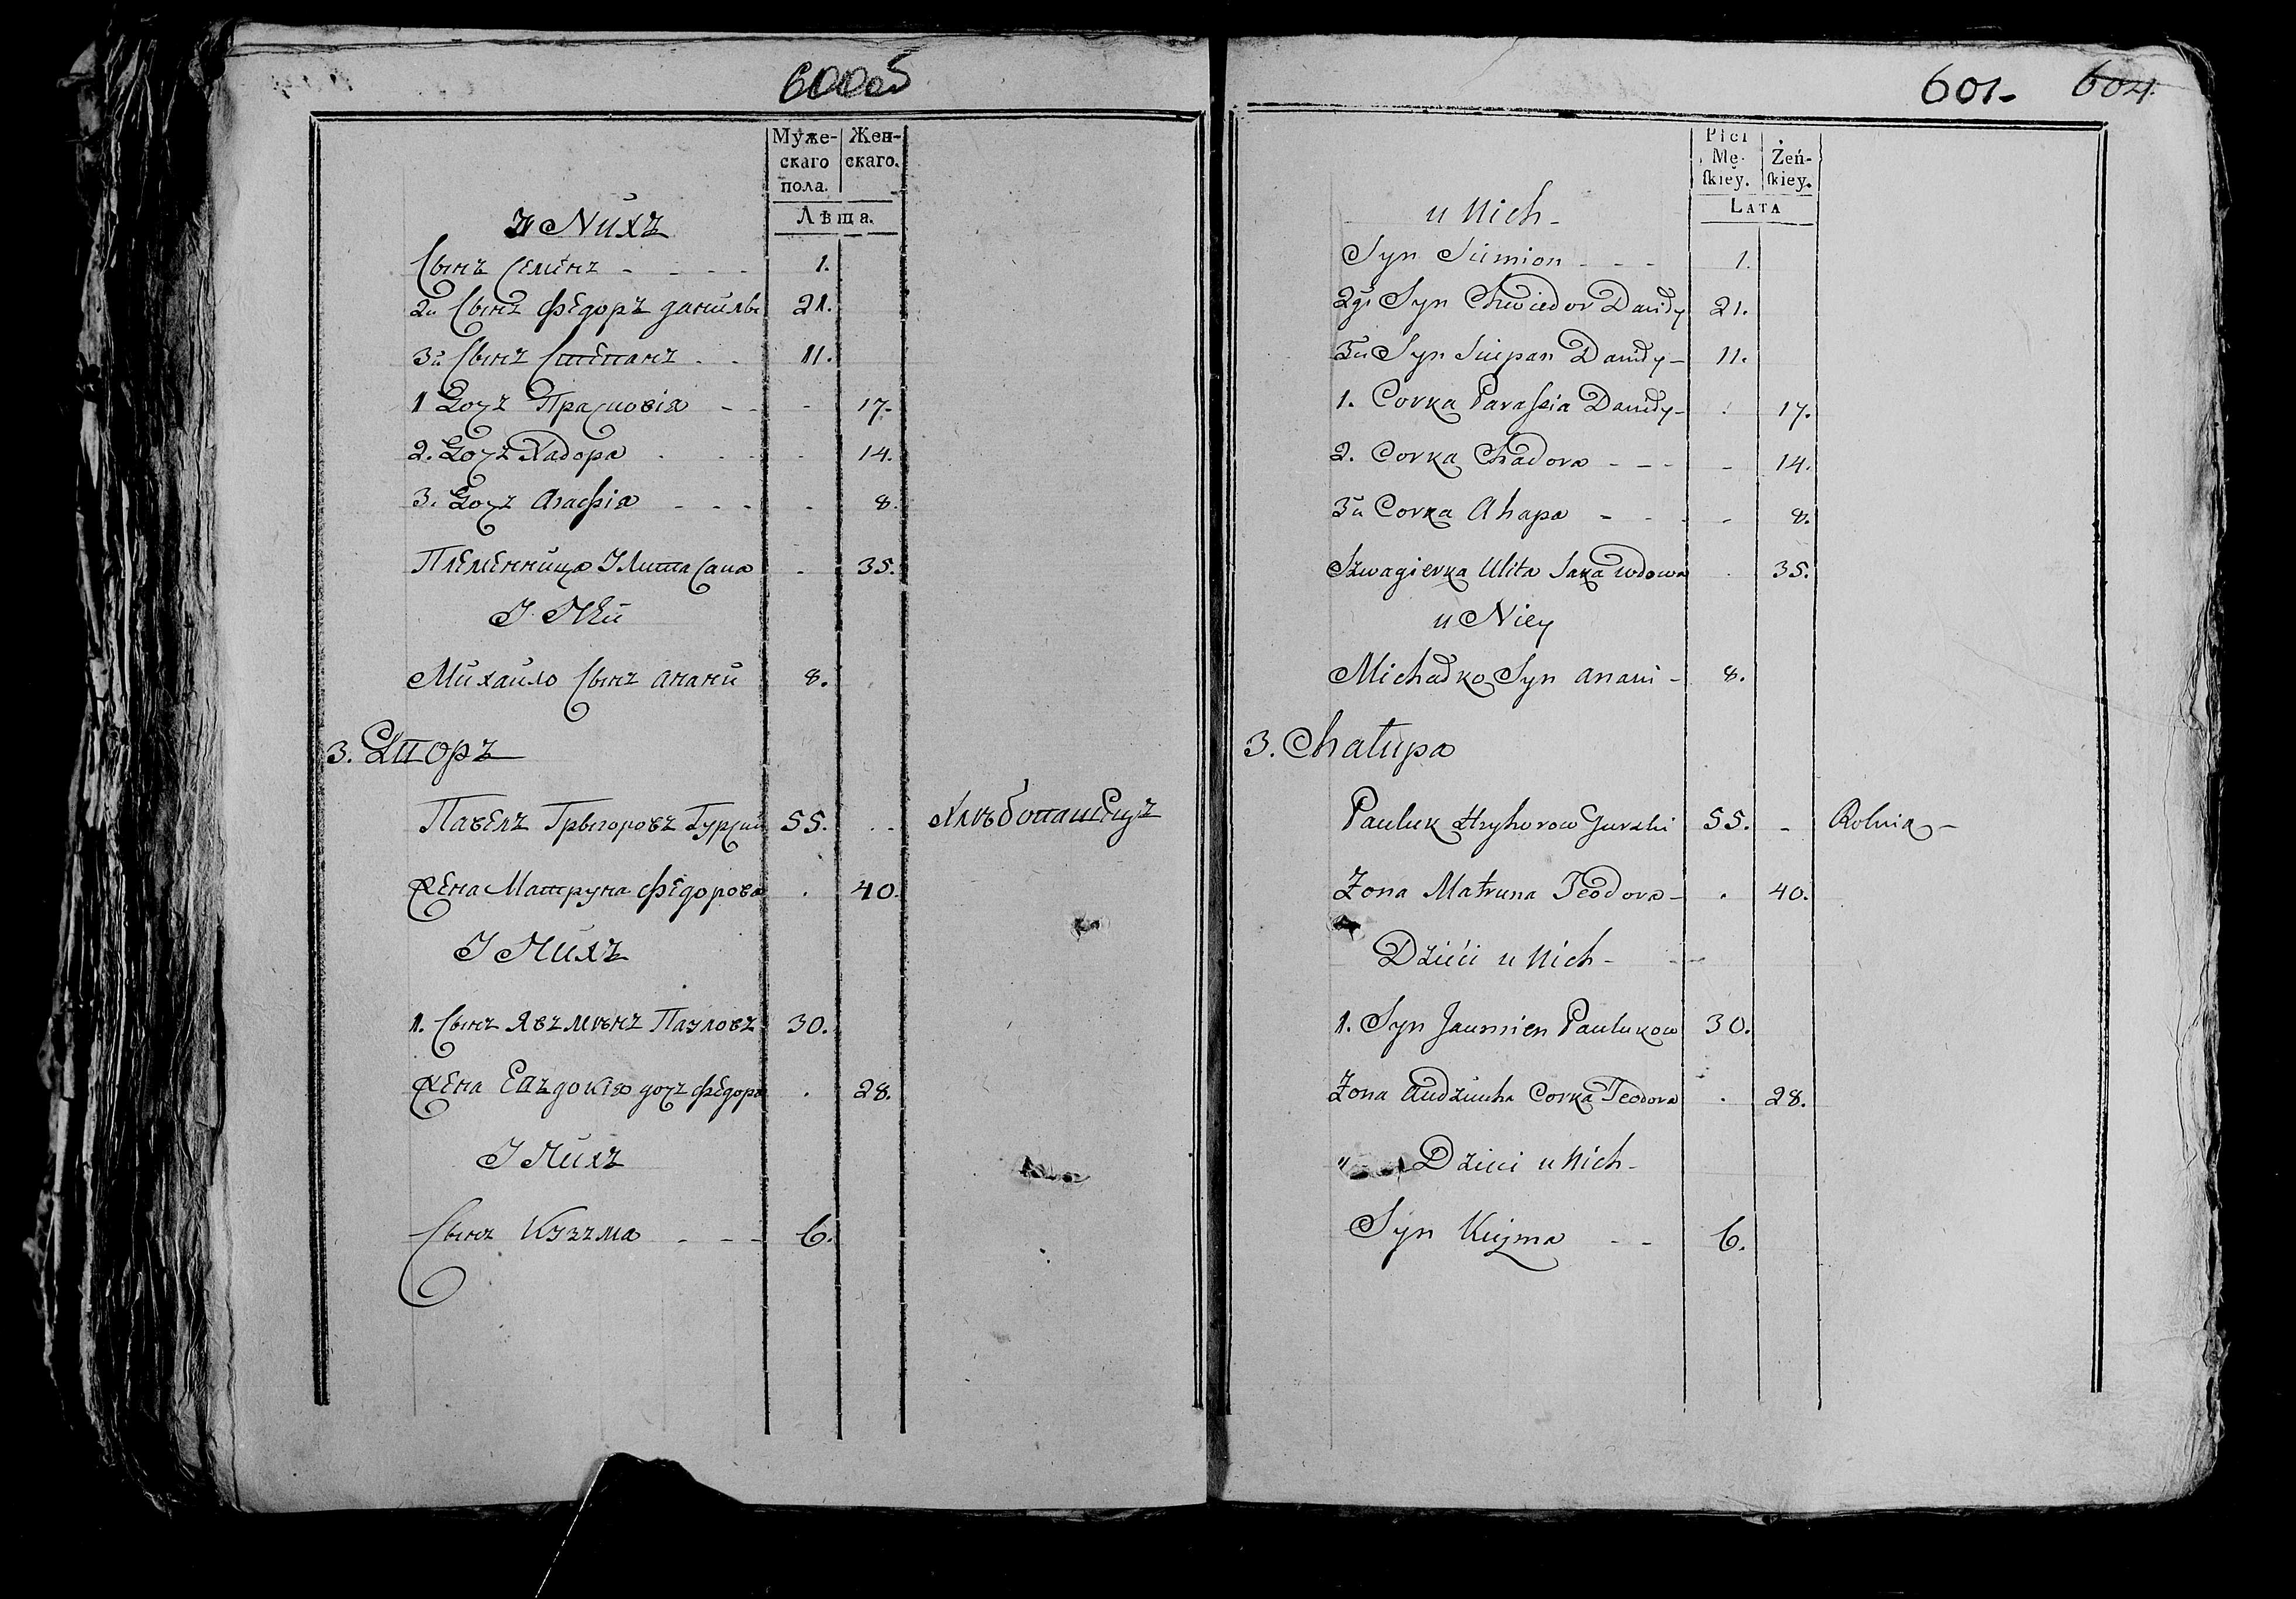 600об
Муже-
скаго
пола.
Жен-
скаго.
Лѣта.
У Нихъ
Сынъ Семенъ - - - - 1.
2й Сынъ Федоръ Данилы 21.
3й Сынъ Степанъ . . 11.
1 Дочъ Прасковія - - - 17.
2. Дочъ Хадора . . . - 14.
3. Дочъ Агафія - - - - 8.
Племенница Улита - 35.
У Ней
Михайло Сынъ Анани 8.
3. Дворъ
Павелъ Грыгоровъ Гурскій 55. . . Хлѣбопашецъ
Жена Матруна Федорова . 40.
У Нихъ
1. Сынъ Явъменъ Павловъ 30.
Жена Евъдокія дочъ Федора . 28.
У Нихъ
Сынъ Кузъма - - - 6.
601- 604.
Płci
Mę-
ſkiey.
Żeń-
ſkiey.
LATA
u Nich -
Syn Siemion - - - 1.
2gi Syn Chwiedor Daniły 21.
3ci Syn Sciepan Daniły - 11.
1. Corka Parassia Daniły - . 17.
2. Corka Chadora - - - - 14.
3a Corka Ahapa - - - - 8.
Szwagierka Ulita wdowa . 35.
u Niey
Michałko Syn Anani - 8.
3. Chałupa
Pauluk Hryhorow Gurski 55. - Rolnik -
Żona Matruna Teodora - . 40.
Dzieci u Nich -
1. Syn Jaumien Paulukow 30.
Żona Audziucha Corka Teodora . 28.
" Dzieci u Nich -
Syn Kuzma - - 6.